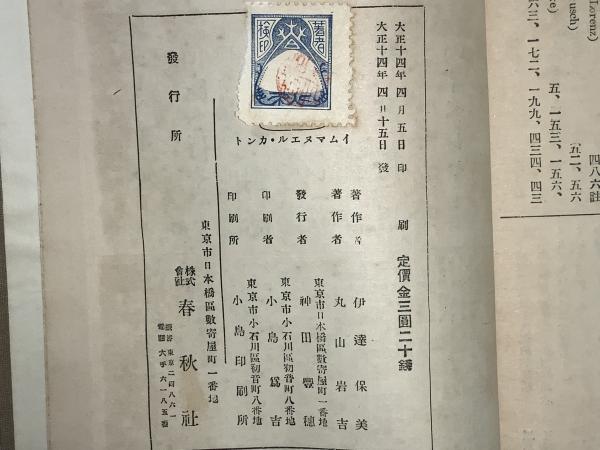 (Lorenz)
usch)
六三、一七二、一九九、四三四、四三
五、一五三、一五六、
五二、五六
四八六註
大正十四年四月五日印刷
大正十四年四月十五日發
定價金三圓二十錢
著者
檢印
イムマヌエル・カント
著作者 伊達保美
著作者 丸山岩吉
東京市日本橋區數寄屋町一番地
發行者 神田豐穗
東京市小石川區初音町八番地
印刷者 小島爲吉
東京市小石川區初音町八番地
印刷所 小島印刷所
東京市日本橋區數寄屋町一番地
發行所 株式會社 春秋社
振替東京二四八六一
電話大手六一八五番